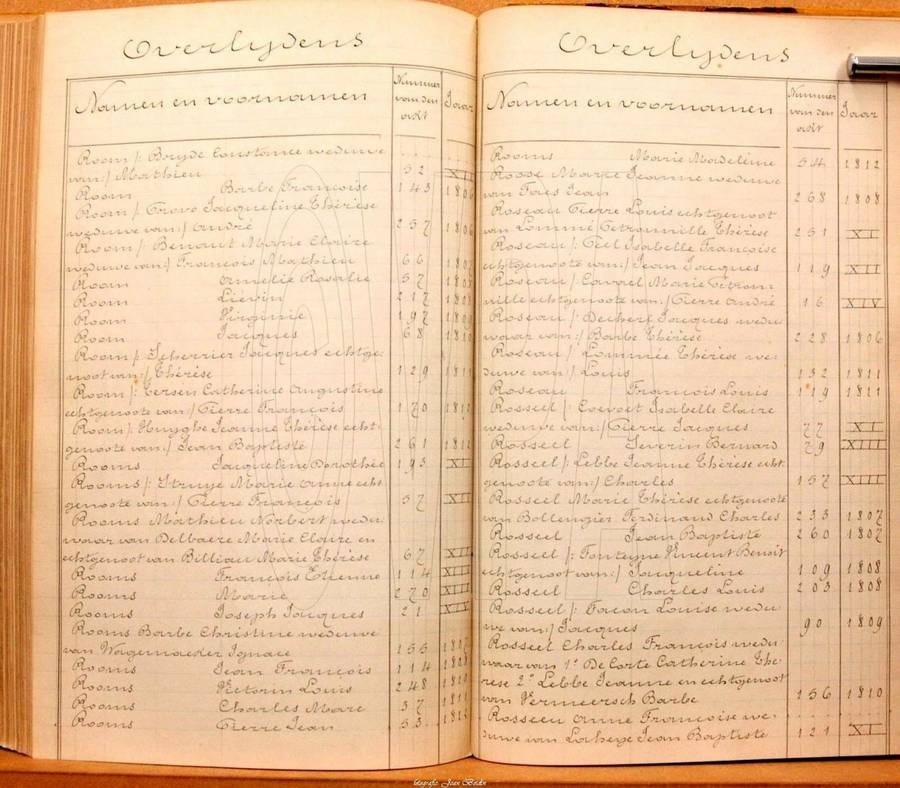 Overlijdens
Namen en voornamen
Nummer van den akt
Jaar
Room /: Boryde Constance weduwe
van :/ Mathieu 52 XII
Room Barbe Françoise 143 1806
Room /: Trovo Jacqueline Thérèse
weduwe van :/ André 257 1806
Room /: Benaut Marie Claire
weduwe van :/ François Mathieu 66 1807
Room Amelie Rosalie 57 1808
Room Lievin 217 1808
Room Virginie 197 1809
Room Jacques 68 1810
Room /: Scherrier Jacques echtge-
noot van :/ Thérèse 129 1811
Room /: Tersen Catherine Augustine
echtgenoote van :/ Pierre François 170 1812
Room /: Huyghe Jeanne Thérèse echt-
genoote van :/ Jean Baptiste 261 1812
Rooms Jacqueline Dorothée 193 XI
Rooms /: Struye Marie Anne echt-
genoote van :/ Pierre François 57 XII
Rooms Mathieu Norbert wedu-
waar van Delbaere Marie Claire en
echtgenoot van Billiau Marie Thérèse 67 XII
Rooms François Etienne 114 XIII
Rooms Marie 270 XIII
Rooms Joseph Jacques 21 XIV
Rooms Barbe Christine weduwe
van Wagemaeker Ignace 155 1807
Rooms Jean François 114 1808
Rooms Victorin Louis 248 1810
Rooms Charles Marc 37 1811
Rooms Pierre Jean 53 1812
Overlijdens
Namen en voornamen
Nummer van den akt
Jaar
Rooms Marie Madeleine 54 1812
Rosse Marie Jeanne weduwe
van Faes Jean 268 1808
Roseau Pierre Louis echtgenoot
van Lomme Petronille Thérèse 251 XI
Roseau /: Geel Isabelle Françoise
echtgenoote van :/ Jean Jacques 119 XII
Roseau /: Cavael Marie Petron-
nille echtgenoote van :/ Pierre André 16 XIV
Roseau /: Dechere Jacques wedu-
waar van :/ Barbe Thérèse 228 1806
Roseau /: Lommée Thérèse we-
duwe van :/ Louis 132 1811
Roseau François Louis 119 1811
Rosseel /: Coevoet Isabelle Claire
weduwe van :/ Pierre Jacques 77 XI
Rosseel Severin Bernard 79 XIII
Rosseel /: Lebbe Jeanne Thérèse echt-
genoote van :/ Charles 157 XIII
Rosseel Marie Thérèse echtgenoote
van Bollengier Ferdinand Charles 233 1807
Rosseel Jean Baptiste 260 1807
Rosseel /: Fonteyne Vincent Benoit
echtgenoot van :/ Jacqueline 109 1808
Rosseel Charles Louis 203 1808
Rosseel /: Facon Louise wedu-
we van :/ Jacques 90 1809
Rosseel Charles François wedu-
waar van 1° De Corte Catherine Thé-
rèse 2° Lebbe Jeanne en echtgenoot
van Vermeersch Barbe 156 1810
Rosseeu Anne Françoise we-
duwe van Laheye Jean Baptiste 121 XI
fotografie: Jean Bolder